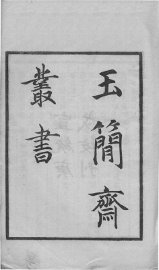 玉簡齋
叢書